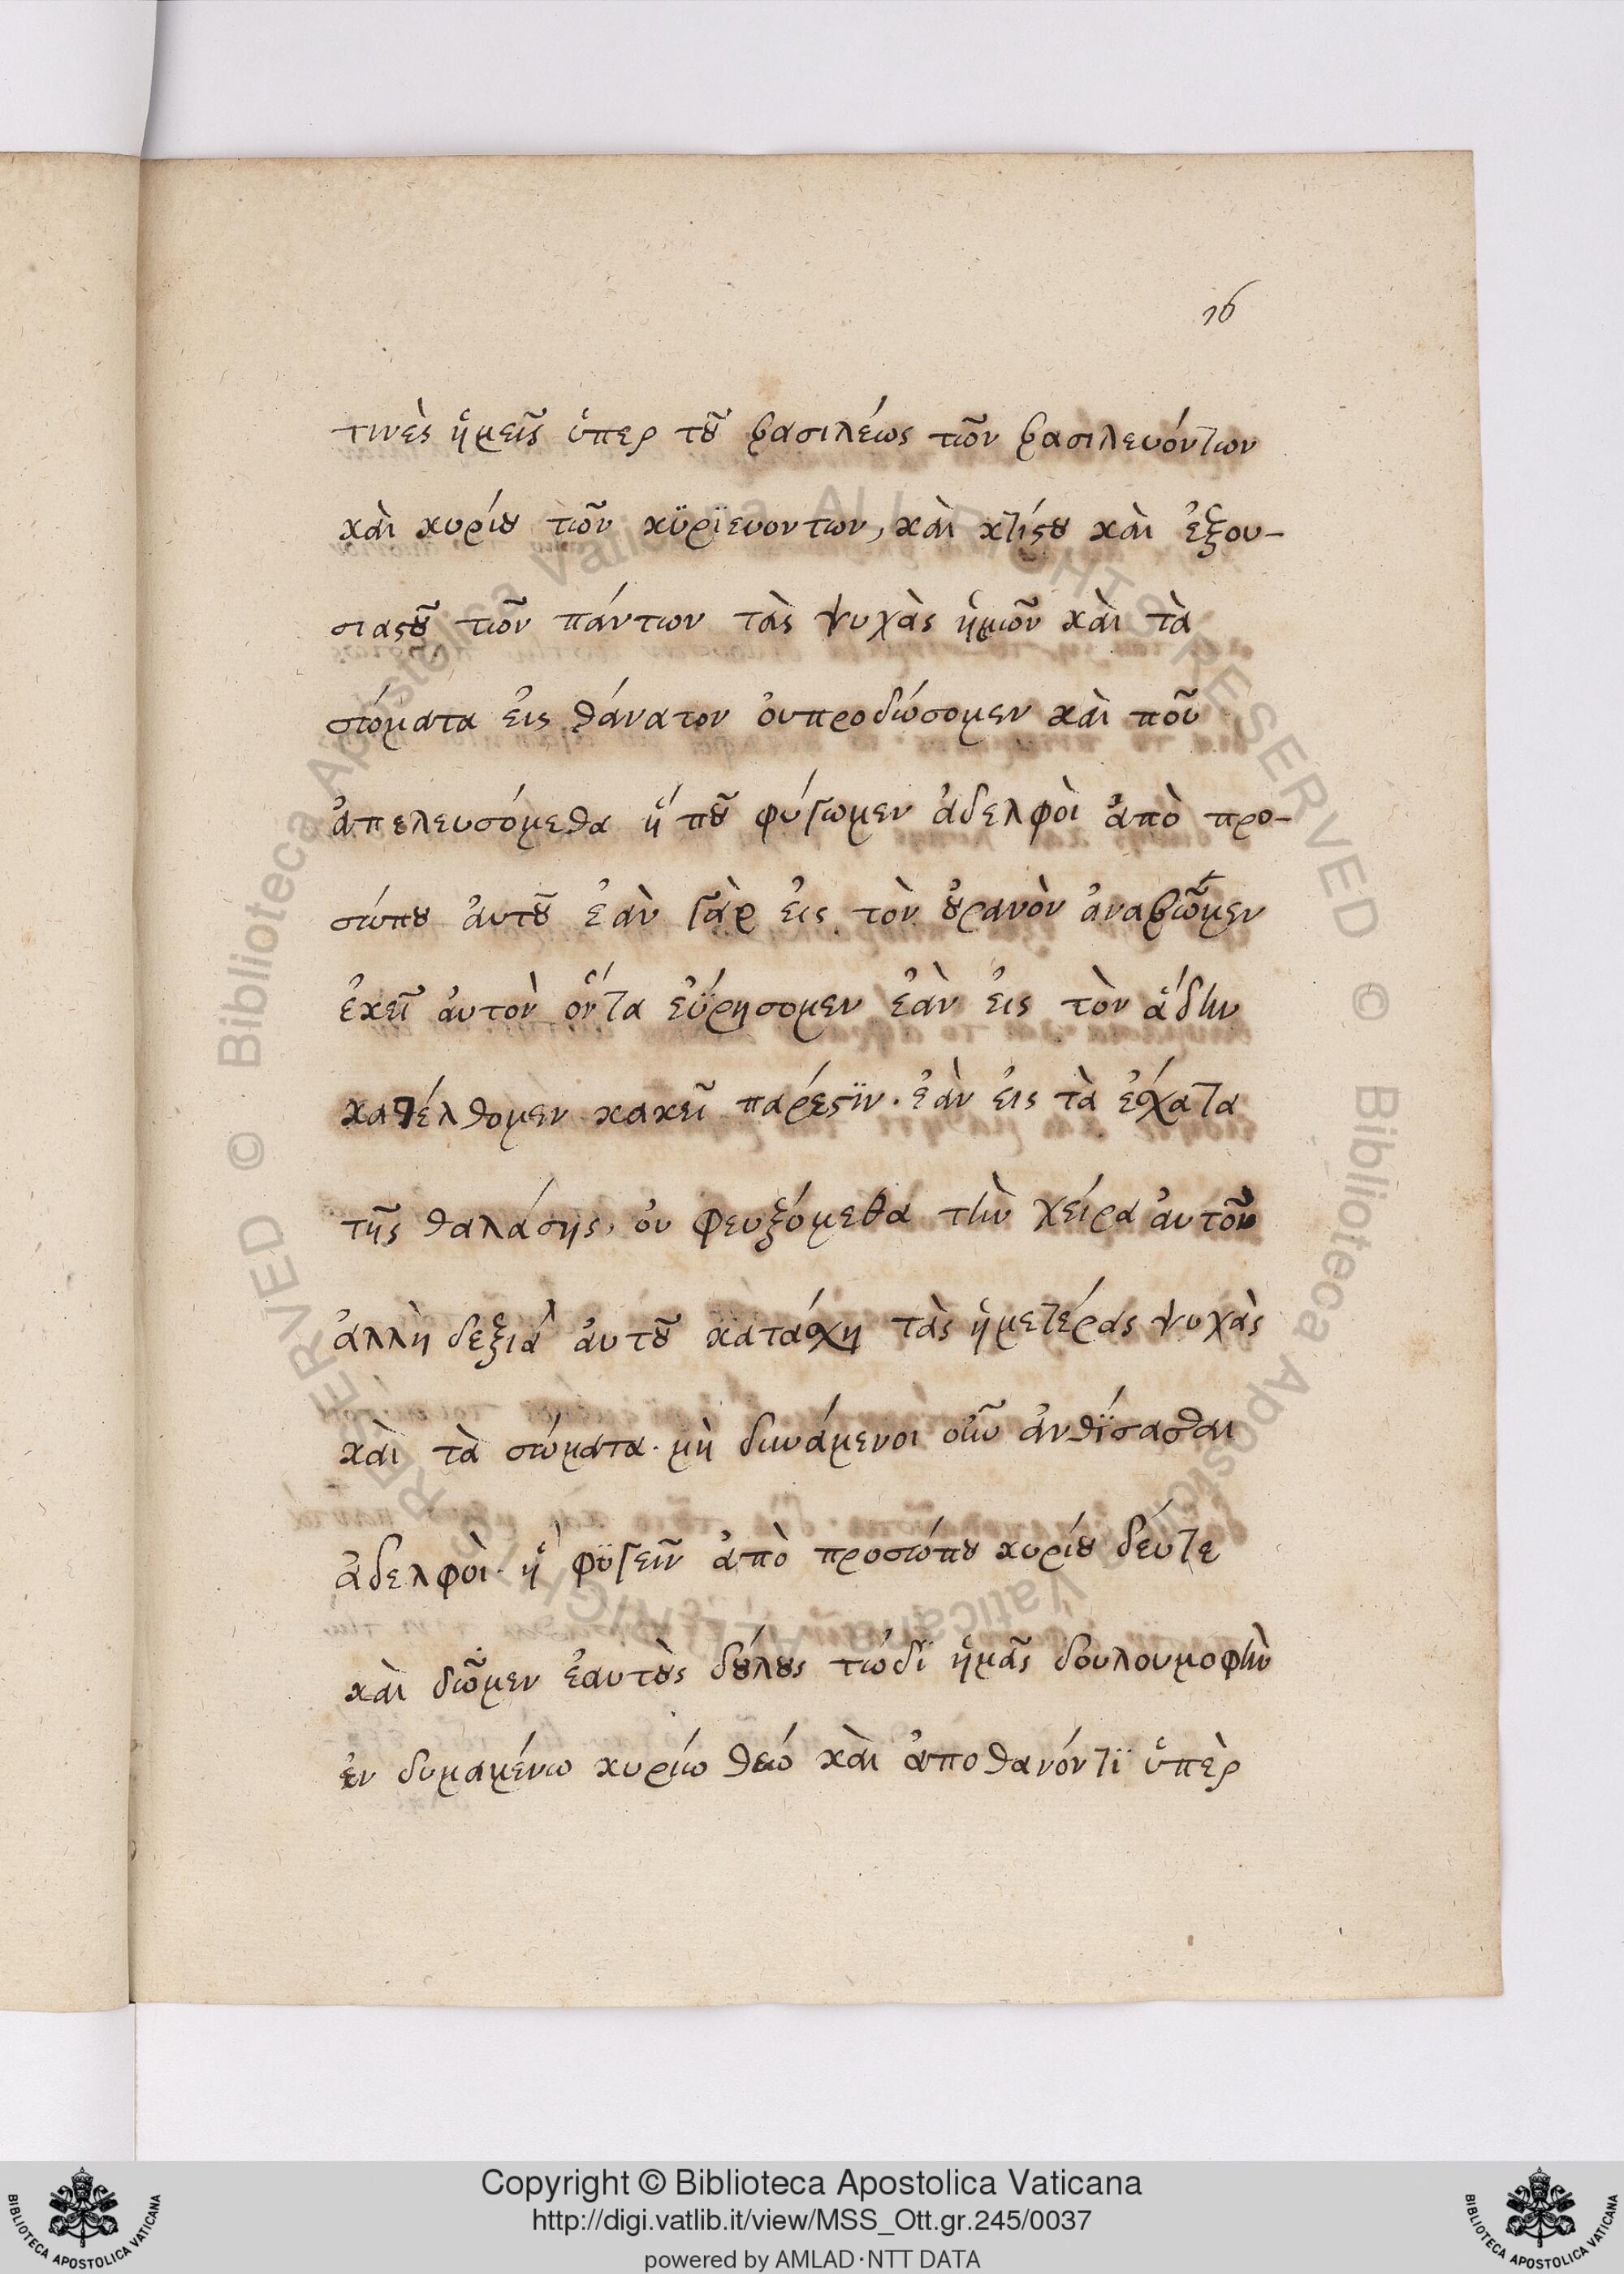 16
τινὲς ἡμεῖς ὑπερ τȣ͂ βασιλέως τῶν βασιλευόντων
κὰι κυρίȣ τῶν κϋρϊευοντων, κὰι κτίϛȣ κὰι ἐξου-
σιαϛȣ͂ τῶν πάντων τὰς ψυχὰς ἡμῶν κὰι τὰ
στόματα ἐις θάνατον ὀυπροδώσομεν κὰι ποῦ
ἀπελευσόμεθα ἤ πȣ͂ φύγωμεν ἀδελφὸι ἀπὸ προ-
σώπȣ ἀυτȣ͂ ἐὰν γὰρ ἐις τὸν ȣ̓ρανὸν ἀναβῶμεν
ἐκεῖ ἀυτὸν ὄντα ἑϋρησομεν ἐὰν ἐις τὸν ἅδην
κατέλθομεν κακεῖ πάρεϛϊν. ἐὰν ἐις τὰ ἐσχατα
τῆς θαλάσης, ὀυ φευξόμεθα τὴν χείρα ἀυτοῦ
ἀλλὴ δεξιά ἀυτȣ͂ κατάσχη τὰς ἡμετέρας ψυχὰς
κὰι τὰ σώματα. μὴ δυνάμενοι οὖν ἀνθϊσασθαι
ἀδελφὸι. ἢ φϋγεῖν ἀπὸ προσώπȣ κυρίȣ δέυτε
κὰι δῶμεν ἑαυτὸȣς δȣ́λȣς τώδϊ ἡμᾶς δουλουμοφὴν
ἐν δυμαμένω κυρίω θεώ κὰι ἀποθανόντϊ ὑπὲρ
Copyright © Biblioteca Apostolica Vaticana
http://digi.vatlib.it/view/MSS_Ott.gr.245/0037
powered by AMLAD·NTT DATA
BIBLIOTECA APOSTOLICA VATICANA
BIBLIOTECA APOSTOLICA VATICANA
© Biblioteca Apostolica Vaticana ALL RIGHTS RESERVED
© Biblioteca Apostolica Vaticana ALL RIGHTS RESERVED